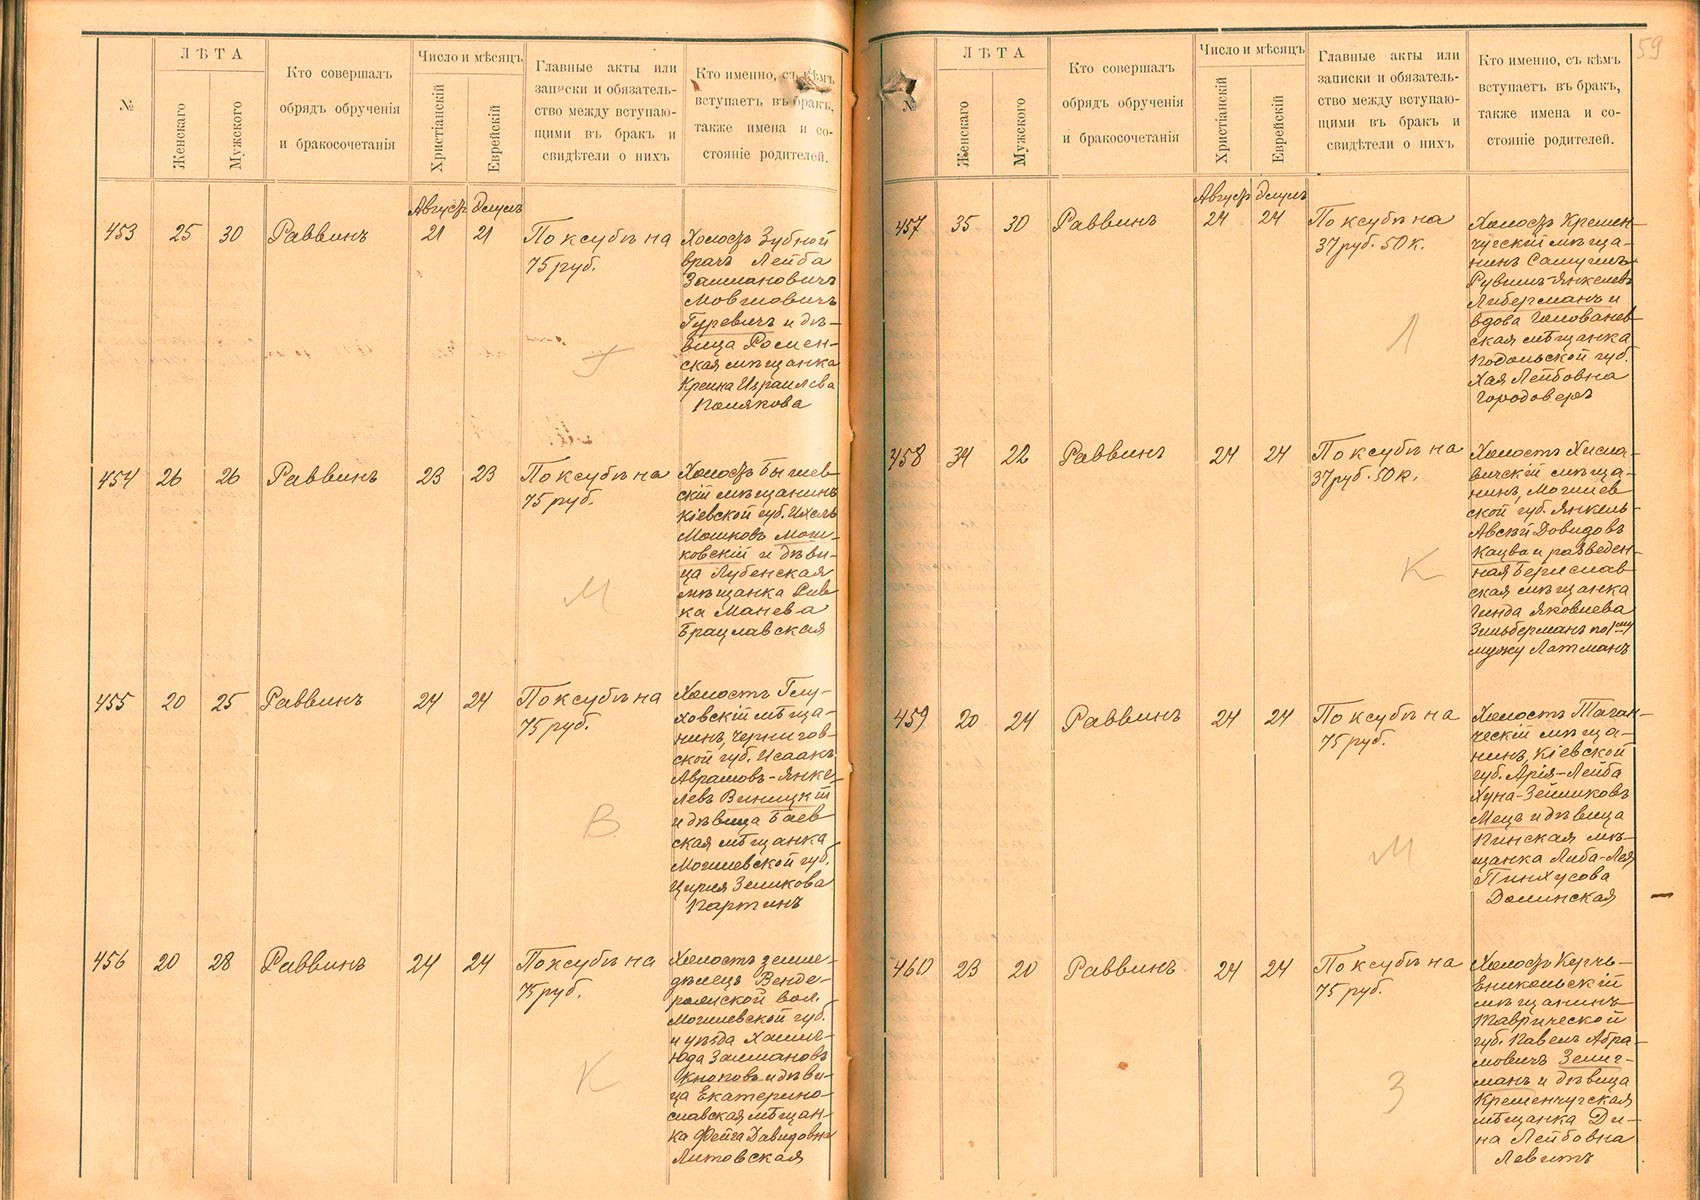 ЛѢТА
№
Женскаго
Мужского
Кто совершалъ
обрядъ обрученія
и бракосочетанія
Число и мѣсяцъ
Христіанскій
Еврейскій
Главные акты или
записки и обязатель-
ство между вступаю-
щими въ бракъ и
свидѣтели о нихъ
Кто именно, съ кѣмъ
вступаетъ въ бракъ,
также имена и со-
стояніе родителей.
453
25
30
Раввинъ
Августъ
21
21
По ксубѣ на
75 руб.
Г
Холостъ Зубной
врачъ Лейба
Залмановичъ
Мовшовичъ
Гуревичъ и дѣ-
вица Ромен-
ская мѣщанка
Крейна Израилева
Полякова
454
26
26
Раввинъ
23
23
По ксубѣ на
75 руб.
М
Холостъ Бышев-
скій мѣщанинъ
Кіевской губ. Ихель
Мошковъ Мош-
ковскій и дѣви-
ца Лубенская
мѣщанка Рив-
ка Манева
Брацлавская
455
20
25
Раввинъ
24
24
По ксубѣ на
75 руб.
В
Холостъ Глу-
ховскій мѣща-
нинъ, Чернигов-
ской губ. Исаакъ
Аврамовъ-Янке-
левъ Виницкій
и дѣвица Баев-
ская мѣщанка
Могилевской губ.
Цирля Зеликова
Партинъ
456
20
28
Раввинъ
24
24
По ксубѣ на
75 руб.
К
Холостъ земле-
дѣлецъ
вол.
Могилевской губ.
и уѣзда
Юда Залмановъ
Кноповъ и дѣви-
ца Екатерино-
славская мѣщан-
ка Фейга Давидовна
Литовская
59
№
ЛѢТА
Женскаго
Мужского
Кто совершалъ
обрядъ обрученія
и бракосочетанія
Число и мѣсяцъ
Христіанскій
Еврейскій
Главные акты или
записки и обязатель-
ство между вступаю-
щими въ бракъ и
свидѣтели о нихъ
Кто именно, съ кѣмъ
вступаетъ въ бракъ,
также имена и со-
стояніе родителей.
457
35
30
Раввинъ
Августъ
24
24
По ксубѣ на
37 руб. 50 к.
Л
Холостъ Кремен-
чугскій мѣща-
нинъ Самуилъ-
Рувимъ-Янкелевъ
Либерманъ и
вдова Голованев-
ская мѣщанка
Подольской губ.
Хая Лейбовна
Городоверъ
458
34
22
Раввинъ
24
24
По ксубѣ на
37 руб. 50 к.
К
Холостъ Хисла-
вичскій мѣща-
нинъ, Могилев-
ской губ. Янкель-
Авсѣй Довидовъ
Кацва и разведен-
ная Берислав-
ская мѣщанка
Гинда Яковлева
Зильберманъ по 1му
мужу Латманъ
459
20
24
Раввинъ
24
24
По ксубѣ на
75 руб.
М
Холостъ Таган-
ческій мѣща-
нинъ, Кіевской
губ. Арія-Лейба
Хуна-Зейликовъ
Мецъ и дѣвица
Пинская мѣ-
щанка Либа-Лея
Пинхусова
Долинская
460
23
20
Раввинъ
24
24
По ксубѣ на
75 руб.
З
Холостъ Керчь-
Еникольскій
мѣщанинъ
Таврической
губ. Павелъ Абра-
мовичъ Зелиг-
манъ и дѣвица
Кременчугская
мѣщанка Ди-
на Лейбовна
Левитъ